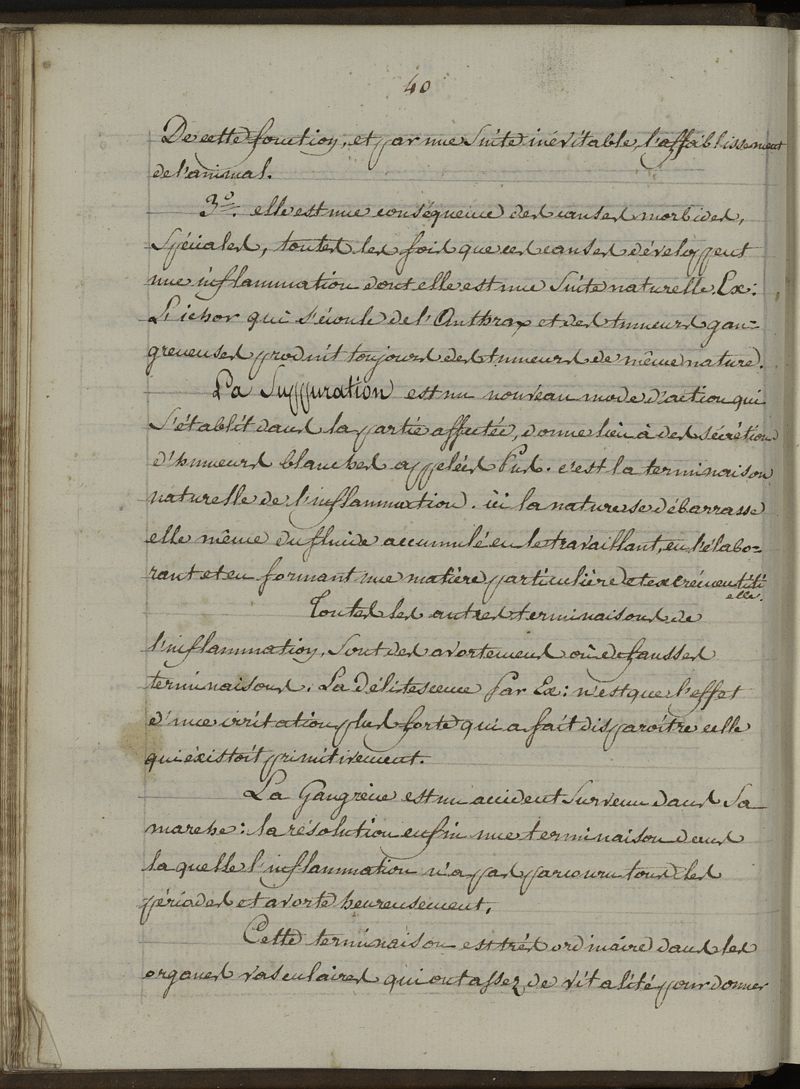 40
De cette fonction, et par une Suite inévitable, l'affaiblissement
de l'animal.
3º. elle est une conséquence des causes morbides,
Spéciales, toutes les fois que ces causes développent
une inflammation dont elle est une Suite naturelle. Ex:
L'ichor qui s'écoule de l'Anthrax et des tumeurs gan-
greneuses produit toujours des tumeurs de même nature.
La Suppuration est un nouveau mode d'action qui
S'établit dans la partie affectée, donne lieu à des sécrétions
d'humeurs blanches appelées Pus. c'est la terminaison
naturelle de l'inflammation. ici la nature se débarrasse
elle même du fluide accumulé en le travaillant, en l'élabo-
rant et en formant une matière particulière et excrémentiti
elle.
Toutes les autres terminaisons de
l'inflammation, Sont des avortemens où de fausses
terminaisons. La Délitescence Par Ex: n'est que l'effet
d'une irritation plus forte qui a fait disparoître celle
qui éxistoit primitivement.
La Gangrène est un accident Survenu dans Sa
marche: la résolution enfin une terminaison dans
la quelle l'inflammation n'a pas parcouru tous les
périodes et avorte heureusement.
Cette terminaison est très ordinaire dans les
organes vasculaires qui ont assez de vitalité pour donner